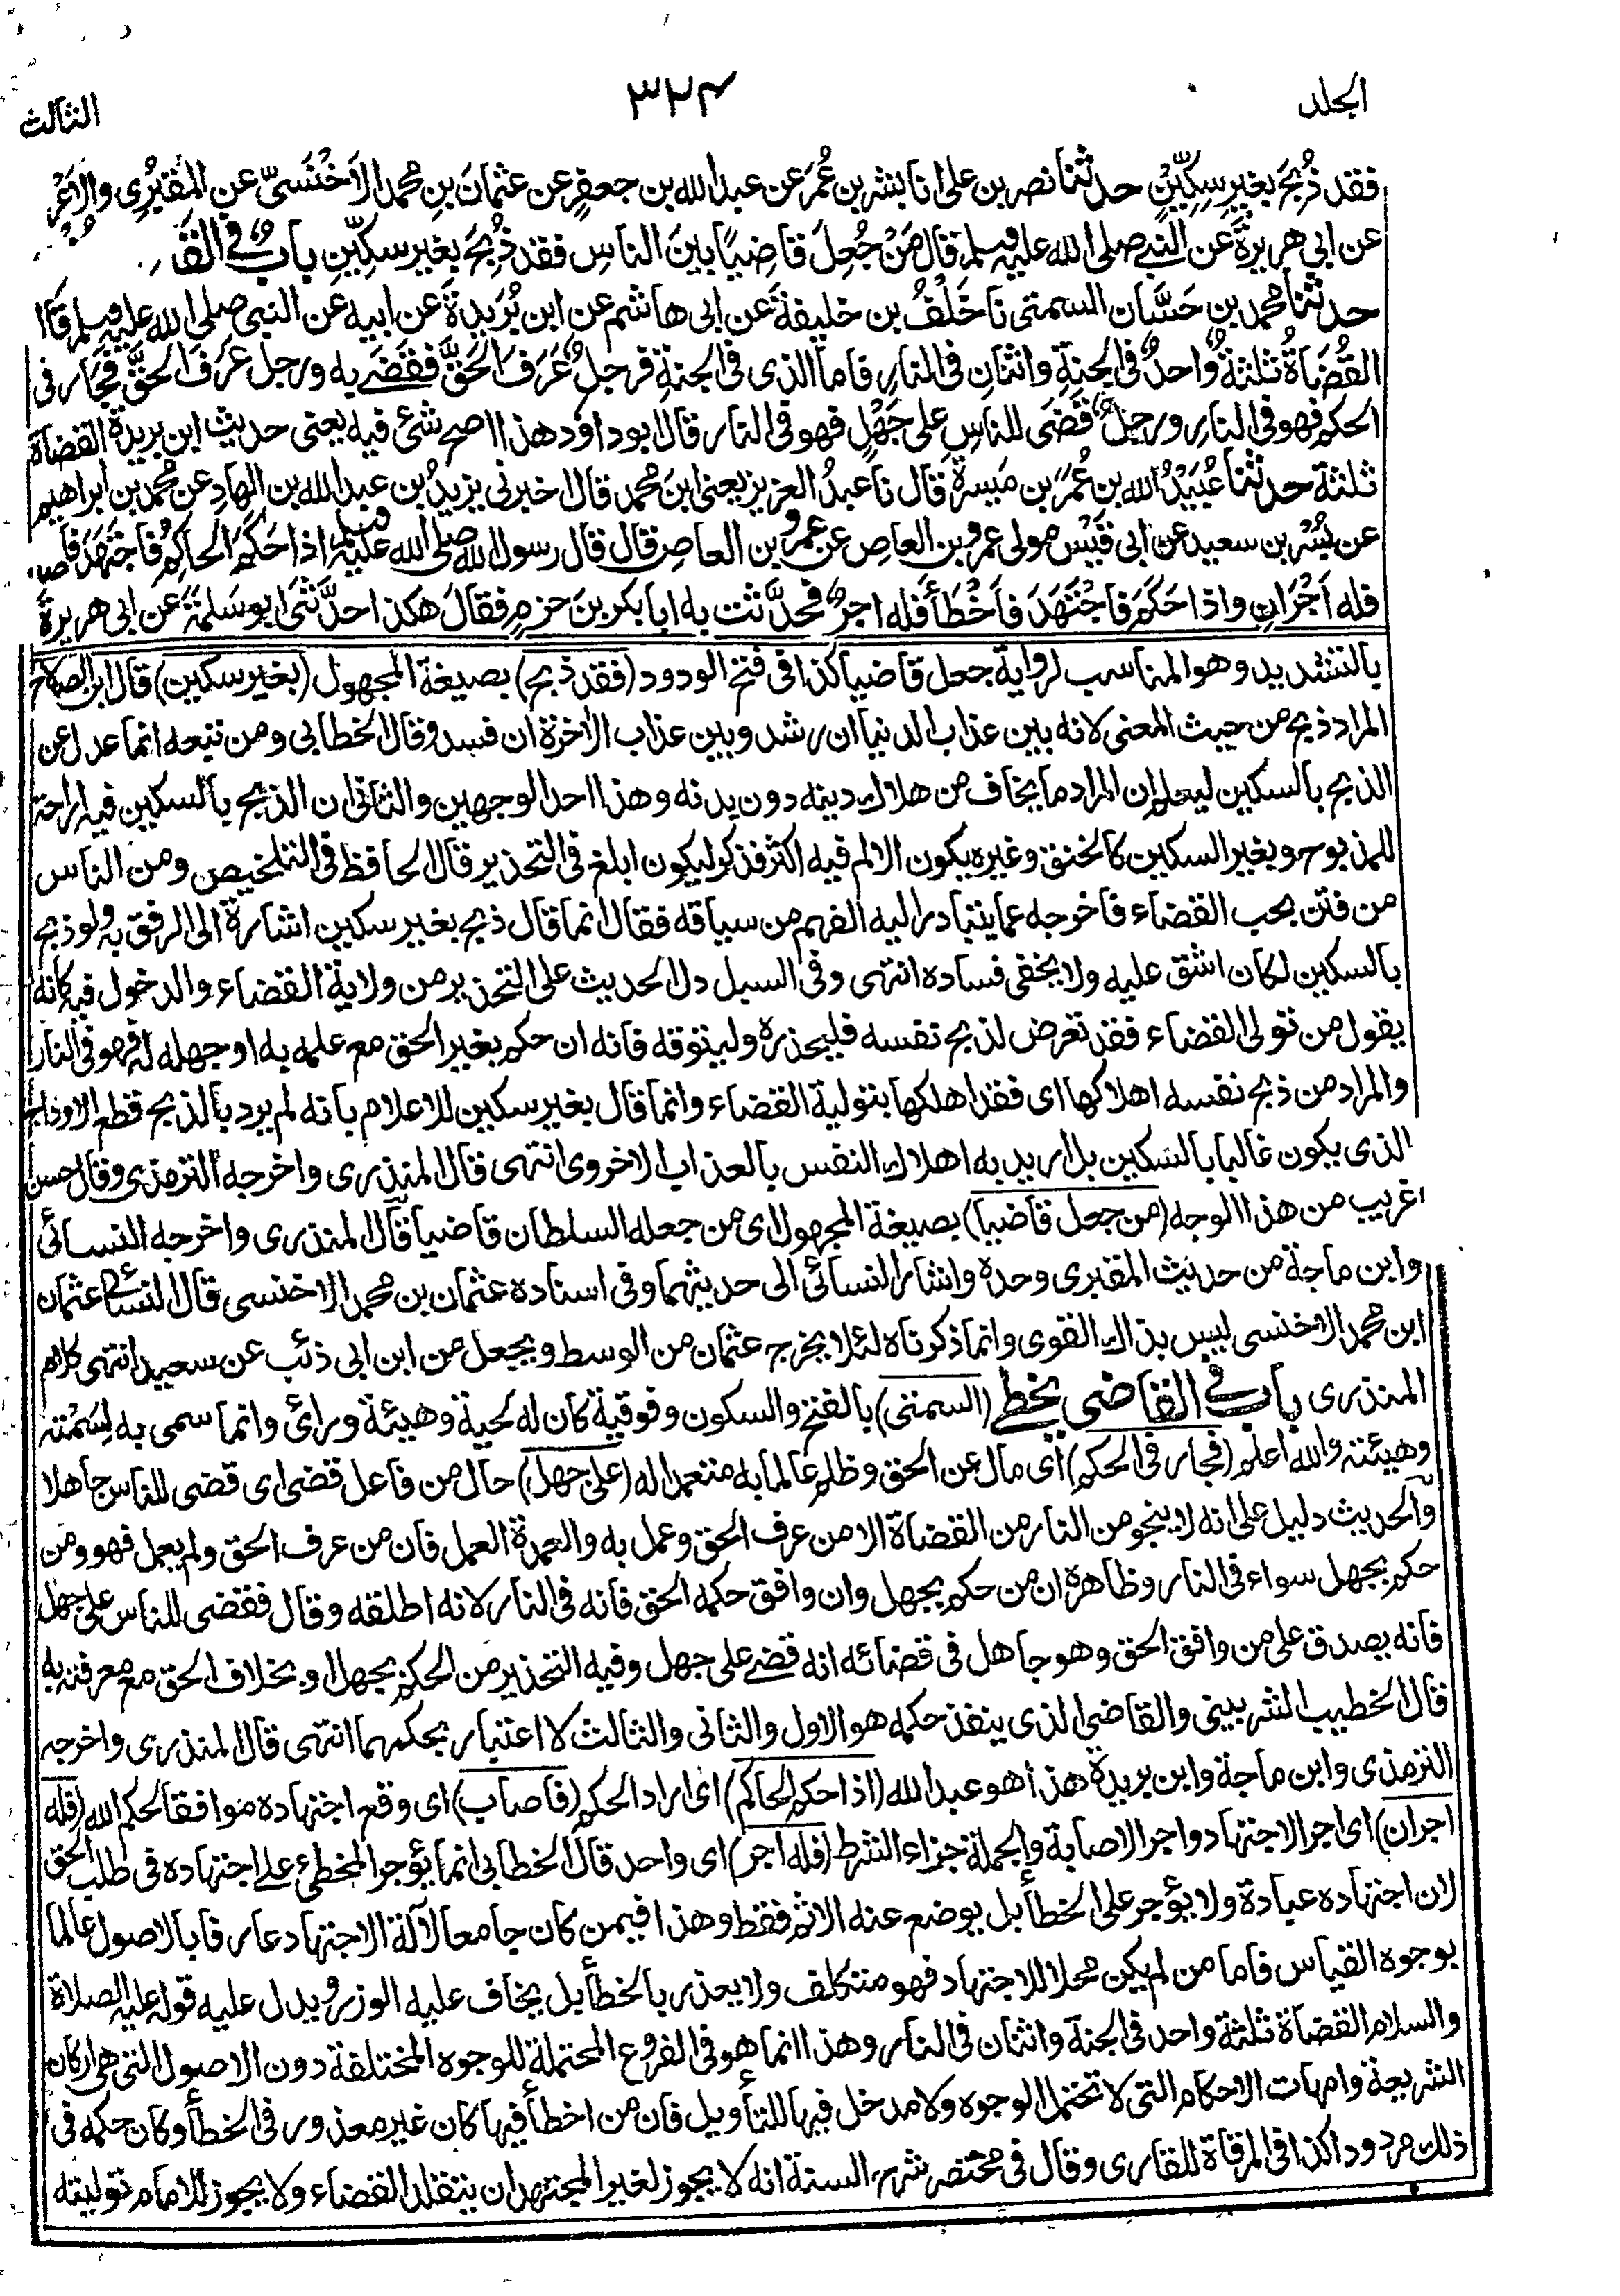 الجلد
٣٢٤
الثالث
فقد ذُبِحَ بغيرِ سِكِّيْنٍ حدثنا نصر بن علی انا بشر بن عُمَرَ عن عبد الله بن جعفرٍ عن عثمانَ بنِ محمد الاَخْنَسيّ عن المَقْبُرِی والاَعْرَ
عن ابی هريرةَ عن النبی صلی الله عليه وسلم قال مَنْ جُعِلَ قاضيًا بينَ الناسِ فقد ذُبِحَ بغير سكّينٍ بابٌ فی
حدثنا محمد بن حَسَّان السمتی نا خَلَفُ بن خليفةَ عن ابی هاشم عن ابن بُرَيدةَ عن ابيه عن النبی صلی الله عليه وسلم قال
القُضَاةُ ثلثةٌ واحدٌ فی الجنةِ واثنانِ فی النارِ فاما الذی فی الجنةِ فرجلٌ عَرَفَ الحَقَّ فَقَضَی به ورجل عَرَفَ الحقَّ فجَارَ فی
الحكمِ فهو فی النارِ ورجلٌ قَضَی للناسِ علی جَهْلٍ فهو فی النار قال ابو داود هذا اصح شئ فيه يعنی حديث ابن بريدة القضاة
ثلثة حدثنا عُبَيْدُ الله بن عُمَرَ بن مَيسرةَ قال نا عبدُ العزيز يعنی ابنَ محمد قال اخبرنی يزيدُ بن عبد الله بن الهادِ عن محمد بن ابراهيم
عن بُسْرِ بن سعيد عن ابی قَيْس مولی عمرو بن العاصِ عن عمرو بن العاصِ قال قال رسول الله صلی الله عليه وسلم اذا حَكَمَ الحاكِمُ فاجْتَهَدَ فاصا
فله اَجْرَانِ واذا حَكَمَ فاجْتَهَدَ فاَخْطَأَ فله اجرٌ فحدَّثت به ابا بكرِ بنَ حزمٍ فقالَ هكذا حدَّثنی ابو سَلمةَ عن ابی هريرةَ
بالتشديد وهو المناسب لرواية جعل قاضيا كذا فی فتح الودود (فقد ذبح) بصيغة المجهول (بغير سكين) قال ابن الصلاح
المراد ذبح من حيث المعنی لانه بين عذاب الدنيا ان رشد وبين عذاب الاخرة ان فسد وقال الخطابی ومن تبعه انما عدل عن
الذبح بالسكين ليعلم ان المراد ما يخاف من هلاك دينه دون بدنه وهذا احد الوجهين والثانی ان الذبح بالسكين فيه اراحة
للمذبوح وبغير السكين كالخنق وغيره يكون الالم فيه اكثر فذكر ليكون ابلغ فی التحذير قال الحافظ فی التلخيص ومن الناس
من فتن بحب القضاء فاخرجه عما يتبادر اليه الفهم من سياقه فقال انما قال ذبح بغير سكين اشارة الی الرفق به ولو ذبح
بالسكين لكان اشق عليه ولا يخفی فساده انتهی وفی السبل دل الحديث علی التحذير من ولاية القضاء والدخول فيه كانه
يقول من تولی القضاء فقد تعرض لذبح نفسه فليحذره وليتوقه فانه ان حكم بغير الحق مع علمه به او جهله له فهو فی النار
والمراد من ذبح نفسه اهلاكها ای فقد اهلكها بتولية القضاء وانما قال بغير سكين للاعلام بانه لم يرد بالذبح قطع الاوداج
الذی يكون غالبا بالسكين بل اريد به اهلاك النفس بالعذاب الاخروی انتهی قال المنذری واخرجه الترمذی وقال حسن
غريب من هذا الوجه (من جعل قاضيا) بصيغة المجهول ای من جعله السلطان قاضيا قال المنذری واخرجه النسائی
وابن ماجة من حديث المقبری وحدة واشار النسائی الی حديثهما وفی اسناده عثمان بن محمد الاخنسی قال النسائی عثمان
ابن محمد الاخنسی ليس بذاك القوی وانما ذكرناه لئلا يخرج عثمان من الوسط ويجعل من ابن ابی ذئب عن سعيد انتهی كلام
المنذری باب فی القاضی يخطی (السمتی) بالفتح والسكون وفوقية كان له لحية وهيئة ورای وانما سمی به لسَمْته
وهيئته والله اعلم (فجار فی الحكم) ای مال عن الحق وظلم عالما به متعمدا له (علی جهل) حال من فاعل قضی ای قضی للناس جاهلا
والحديث دليل علی انه لا ينجو من النار من القضاة الا من عرف الحق وعمل به والعمدة العمل فان من عرف الحق ولم يعمل فهو ومن
حكم بجهل سواء فی النار وظاهره ان من حكم بجهل وان وافق حكمه الحق فانه فی النار لانه اطلقه وقال فقضی للناس علی جهل
فانه يصدق علی من وافق الحق وهو جاهل فی قضائه انه قضی علی جهل وفيه التحذير من الحكم بجهل او بخلاف الحق مع معرفته به
قال الخطيب الشربينی والقاضی الذی ينفذ حكمه هو الاول والثانی والثالث لا اعتبار بحكمهما انتهی قال المنذری واخرجه
الترمذی وابن ماجة وابن بريدة هذا هو عبد الله (اذا حكم الحاكم) ای اراد الحكم (فاصاب) ای وقع اجتهاده موافقا لحكم الله (فله
اجران) ای اجر الاجتهاد واجر الاصابة والجملة جزاء الشرط (فله اجر) ای واحد قال الخطابی انما يؤجر المخطئ علی اجتهاده فی طلب الحق
لان اجتهاده عبادة ولا يؤجر علی الخطأ بل يوضع عنه الاثم فقط وهذا فيمن كان جامعا لآلة الاجتهاد عارفا بالاصول عالما
بوجوه القياس فاما من لم يكن محلا للاجتهاد فهو متكلف ولا يعذر بالخطأ بل يخاف عليه الوزر ويدل عليه قوله عليه الصلاة
والسلام القضاة ثلثة واحد فی الجنة واثنان فی النار وهذا انما هو فی الفروع المحتملة للوجوه المختلفة دون الاصول التی هی اركان
الشريعة وامهات الاحكام التی لا تحتمل الوجوه ولا مدخل فيها للتأويل فان من اخطأ فيها كان غير معذور فی الخطأ وكان حكمه فی
ذلك مردودا كذا فی المرقاة للقاری وقال فی مختصر شرح السنة انه لا يجوز لغير المجتهد ان يتقلد القضاء ولا يجوز للامام توليته